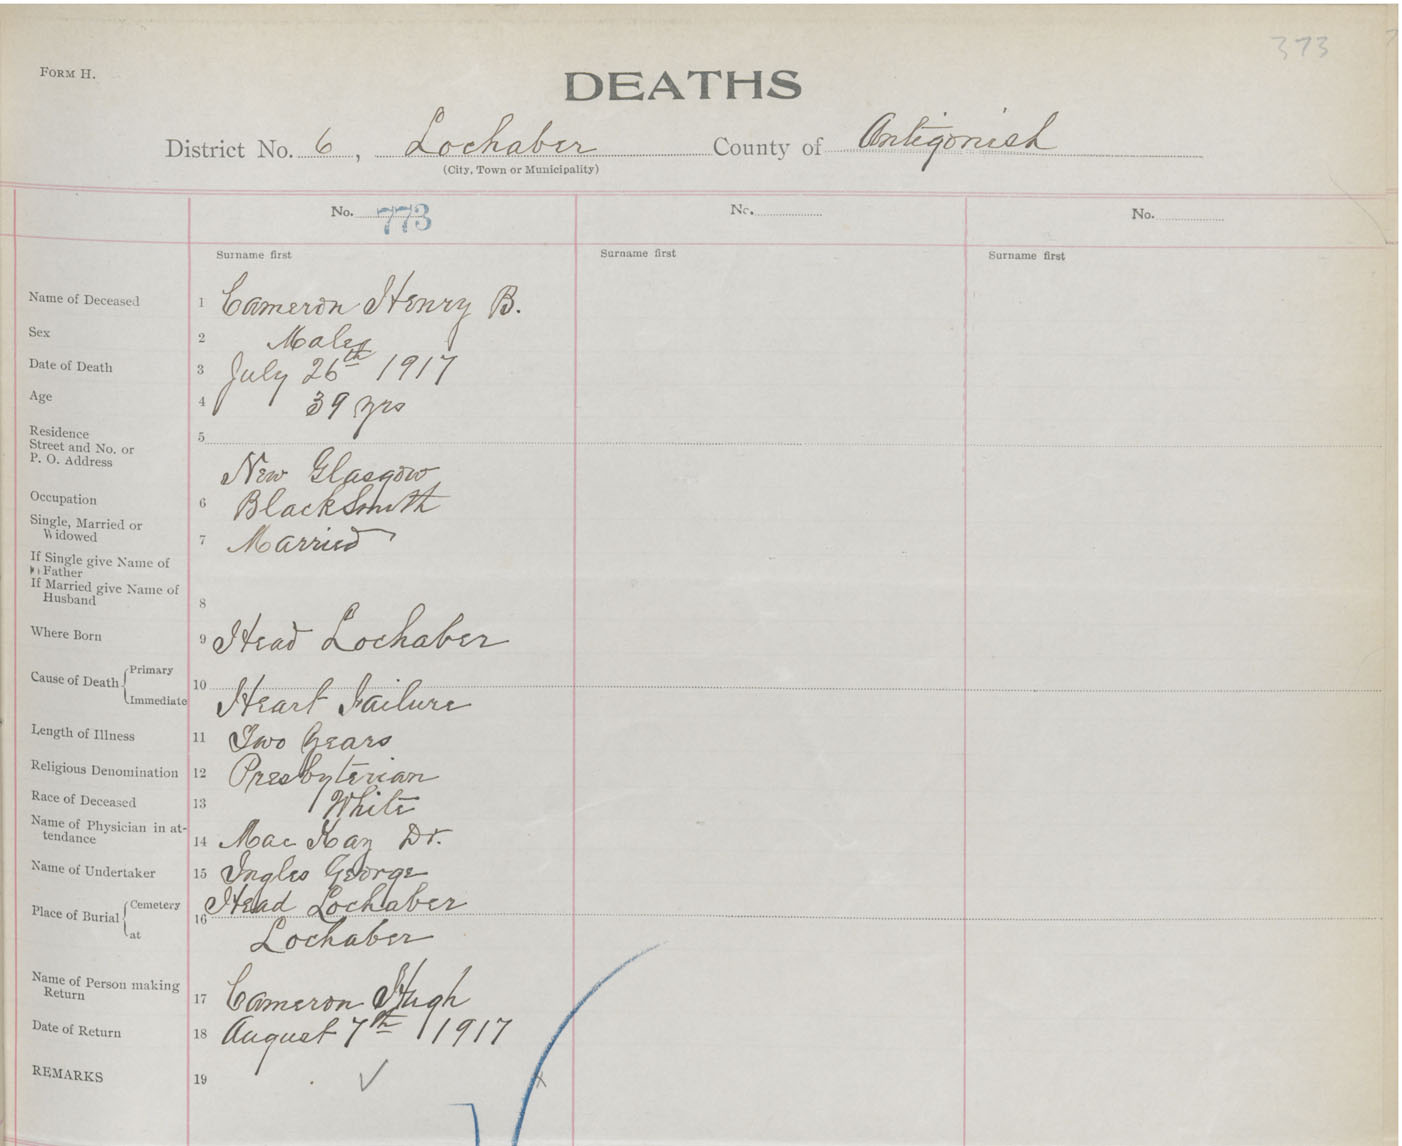 373
FORM H.
DEATHS
District No. 6, Lochaber County of Antigonish
(City, Town or Municipality)
No. 773 No. No.
Surname first Surname first Surname first
Name of Deceased 1 Cameron Henry B.
Sex 2 Male
Date of Death 3 July 26th 1917
Age 4 39 yrs
Residence
Street and No. or
P. O. Address 5 New Glasgow
Occupation 6 BlackSmith
Single, Married or
Widowed 7 Married
If Single give Name of
Father
If Married give Name of
Husband 8
Where Born 9 Head Lochaber
Cause of Death Primary
Immediate 10 Heart Failure
Length of Illness 11 Two Years
Religious Denomination 12 Presbyterian
Race of Deceased 13 White
Name of Physician in at-
tendance 14 Mac Kay Dr.
Name of Undertaker 15 Ingles George
Place of Burial Cemetery 16 Head Lochaber
at Lochaber
Name of Person making
Return 17 Cameron Hugh
Date of Return 18 August 7th 1917
REMARKS 19